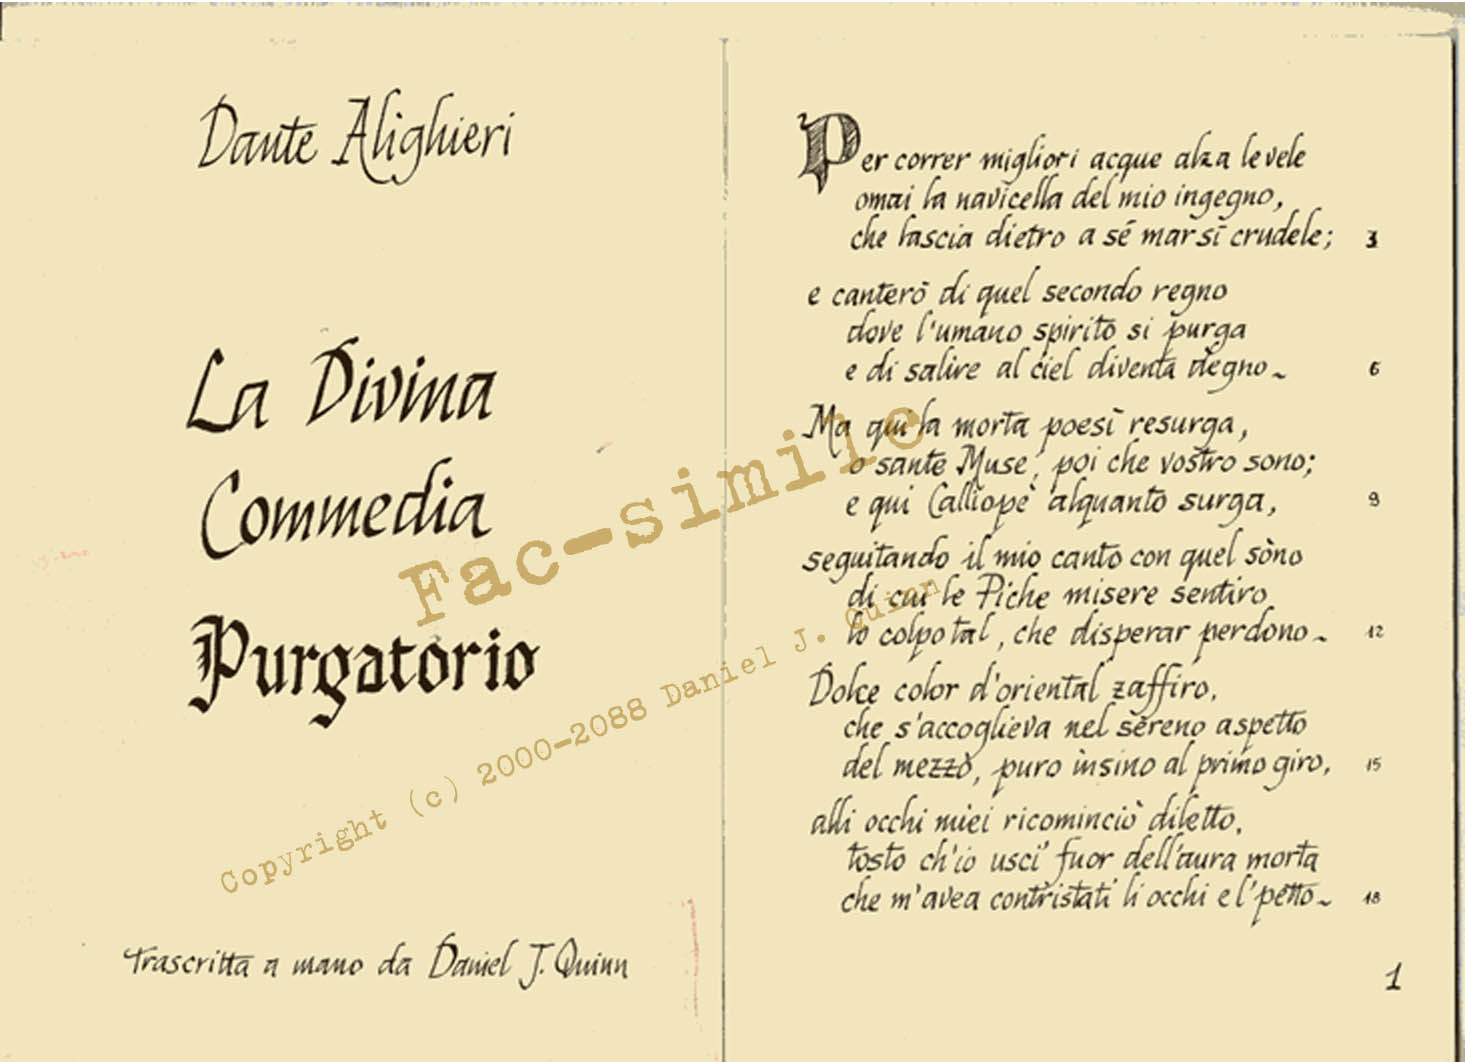 Dante Alighieri
La Divina
Commedia
Purgatorio
Trascritta a mano da Daniel J. Quinn
Per correr migliori acque alza le vele
omai la navicella del mio ingegno,
che lascia dietro a sé mar sì crudele; 3
e canterò di quel secondo regno
dove l'umano spirito si purga
e di salire al ciel diventa degno~ 6
Ma qui la morta poesì resurga,
o sante Muse, poi che vostro sono;
e qui Calliopè alquanto surga, 9
seguitando il mio canto con quel sòno
di cui le Piche misere sentiro
lo colpo tal, che disperar perdono~ 12
Dolce color d'oriental zaffiro,
che s'accoglieva nel sereno aspetto
del mezzo, puro insino al primo giro, 15
alli occhi miei ricominciò diletto,
tosto ch'io usci' fuor dell'aura morta
che m'avea contristati li occhi e l'petto~ 18
1
Fac-simile
Copyright (c) 2000-2088 Daniel J. Quinn